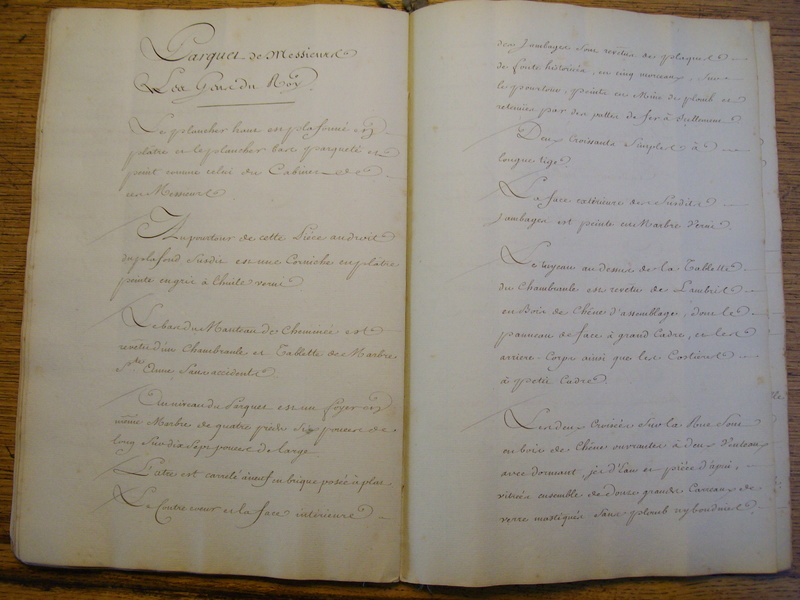 Parquet de Messieurs
Les Gens du Roy
Le plancher haut est plafonné en
plâtre et le plancher bas parqueté et
peint comme celui du Cabinet de
ces Messieurs.
Au pourtour de cette Piéce au droit
du plafond Susdit est une Corniche en plâtre
peinte en gris à l'huile verni
Le bas du Manteau de Cheminée est
revetu d'un Chambranle et Tablette de Marbre
Ste Anne Sans accident
Au niveau du Parquet est un foyer en
même Marbre de quatre pieds Six pouces de
long Sur dix Sept pouces de large
L'atre est carrelé à neuf en brique posée à plat.
Le Contre coeur et la face intérieure
des Jambages Sont revêtus de plaques
de fonte historiées, en cinq morceaux, Sur
le pourtour, peinte en Mine de plomb et
retenues par des pattes de fer à Scellement
Deux Croissants Simples à
longue tige
La face extérieure des Susdits
Jambages est peinte en Marbre Verni
Le tuyeau au dessus de la Tablette
du Chambranle est revetu de Lambris
en Bois de Chêne d'assemblage, dont le
panneau de face à grand Cadre, et les
arriere-Corps ainsi que les Costieres
à petit Cadre
Les deux Croisées Sur la Rue Sont
en bois de Chêne ouvrantes à deux Venteaux
avec dormant, jet d'Eau et piéce d'apui,
vitrées ensemble de Douze grands Carreaux de
verre mastiqués Sans plomb ny boudines